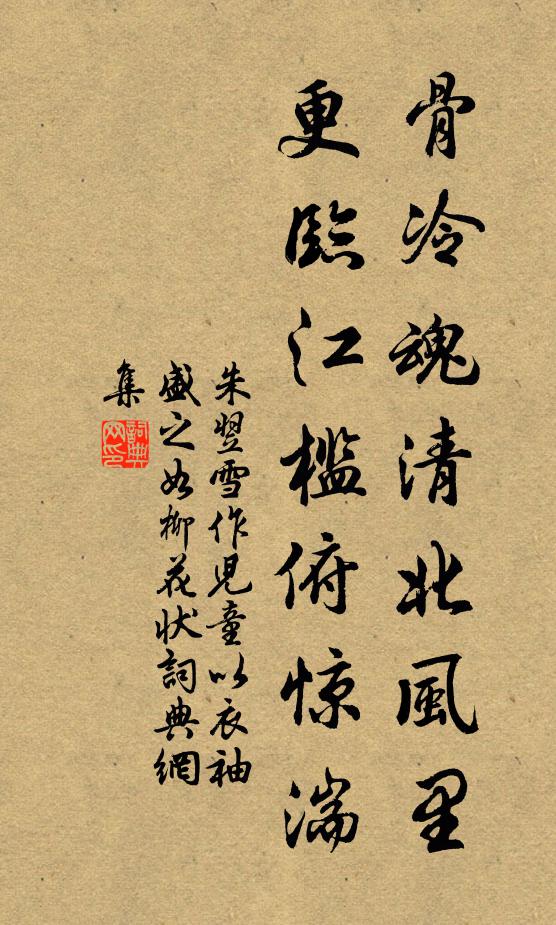 骨冷魂清北風里
更臨江檻俯惊湍
朱翌雪作兒童以衣袖
盛之如柳花狀詞典網
集
詞典
网印